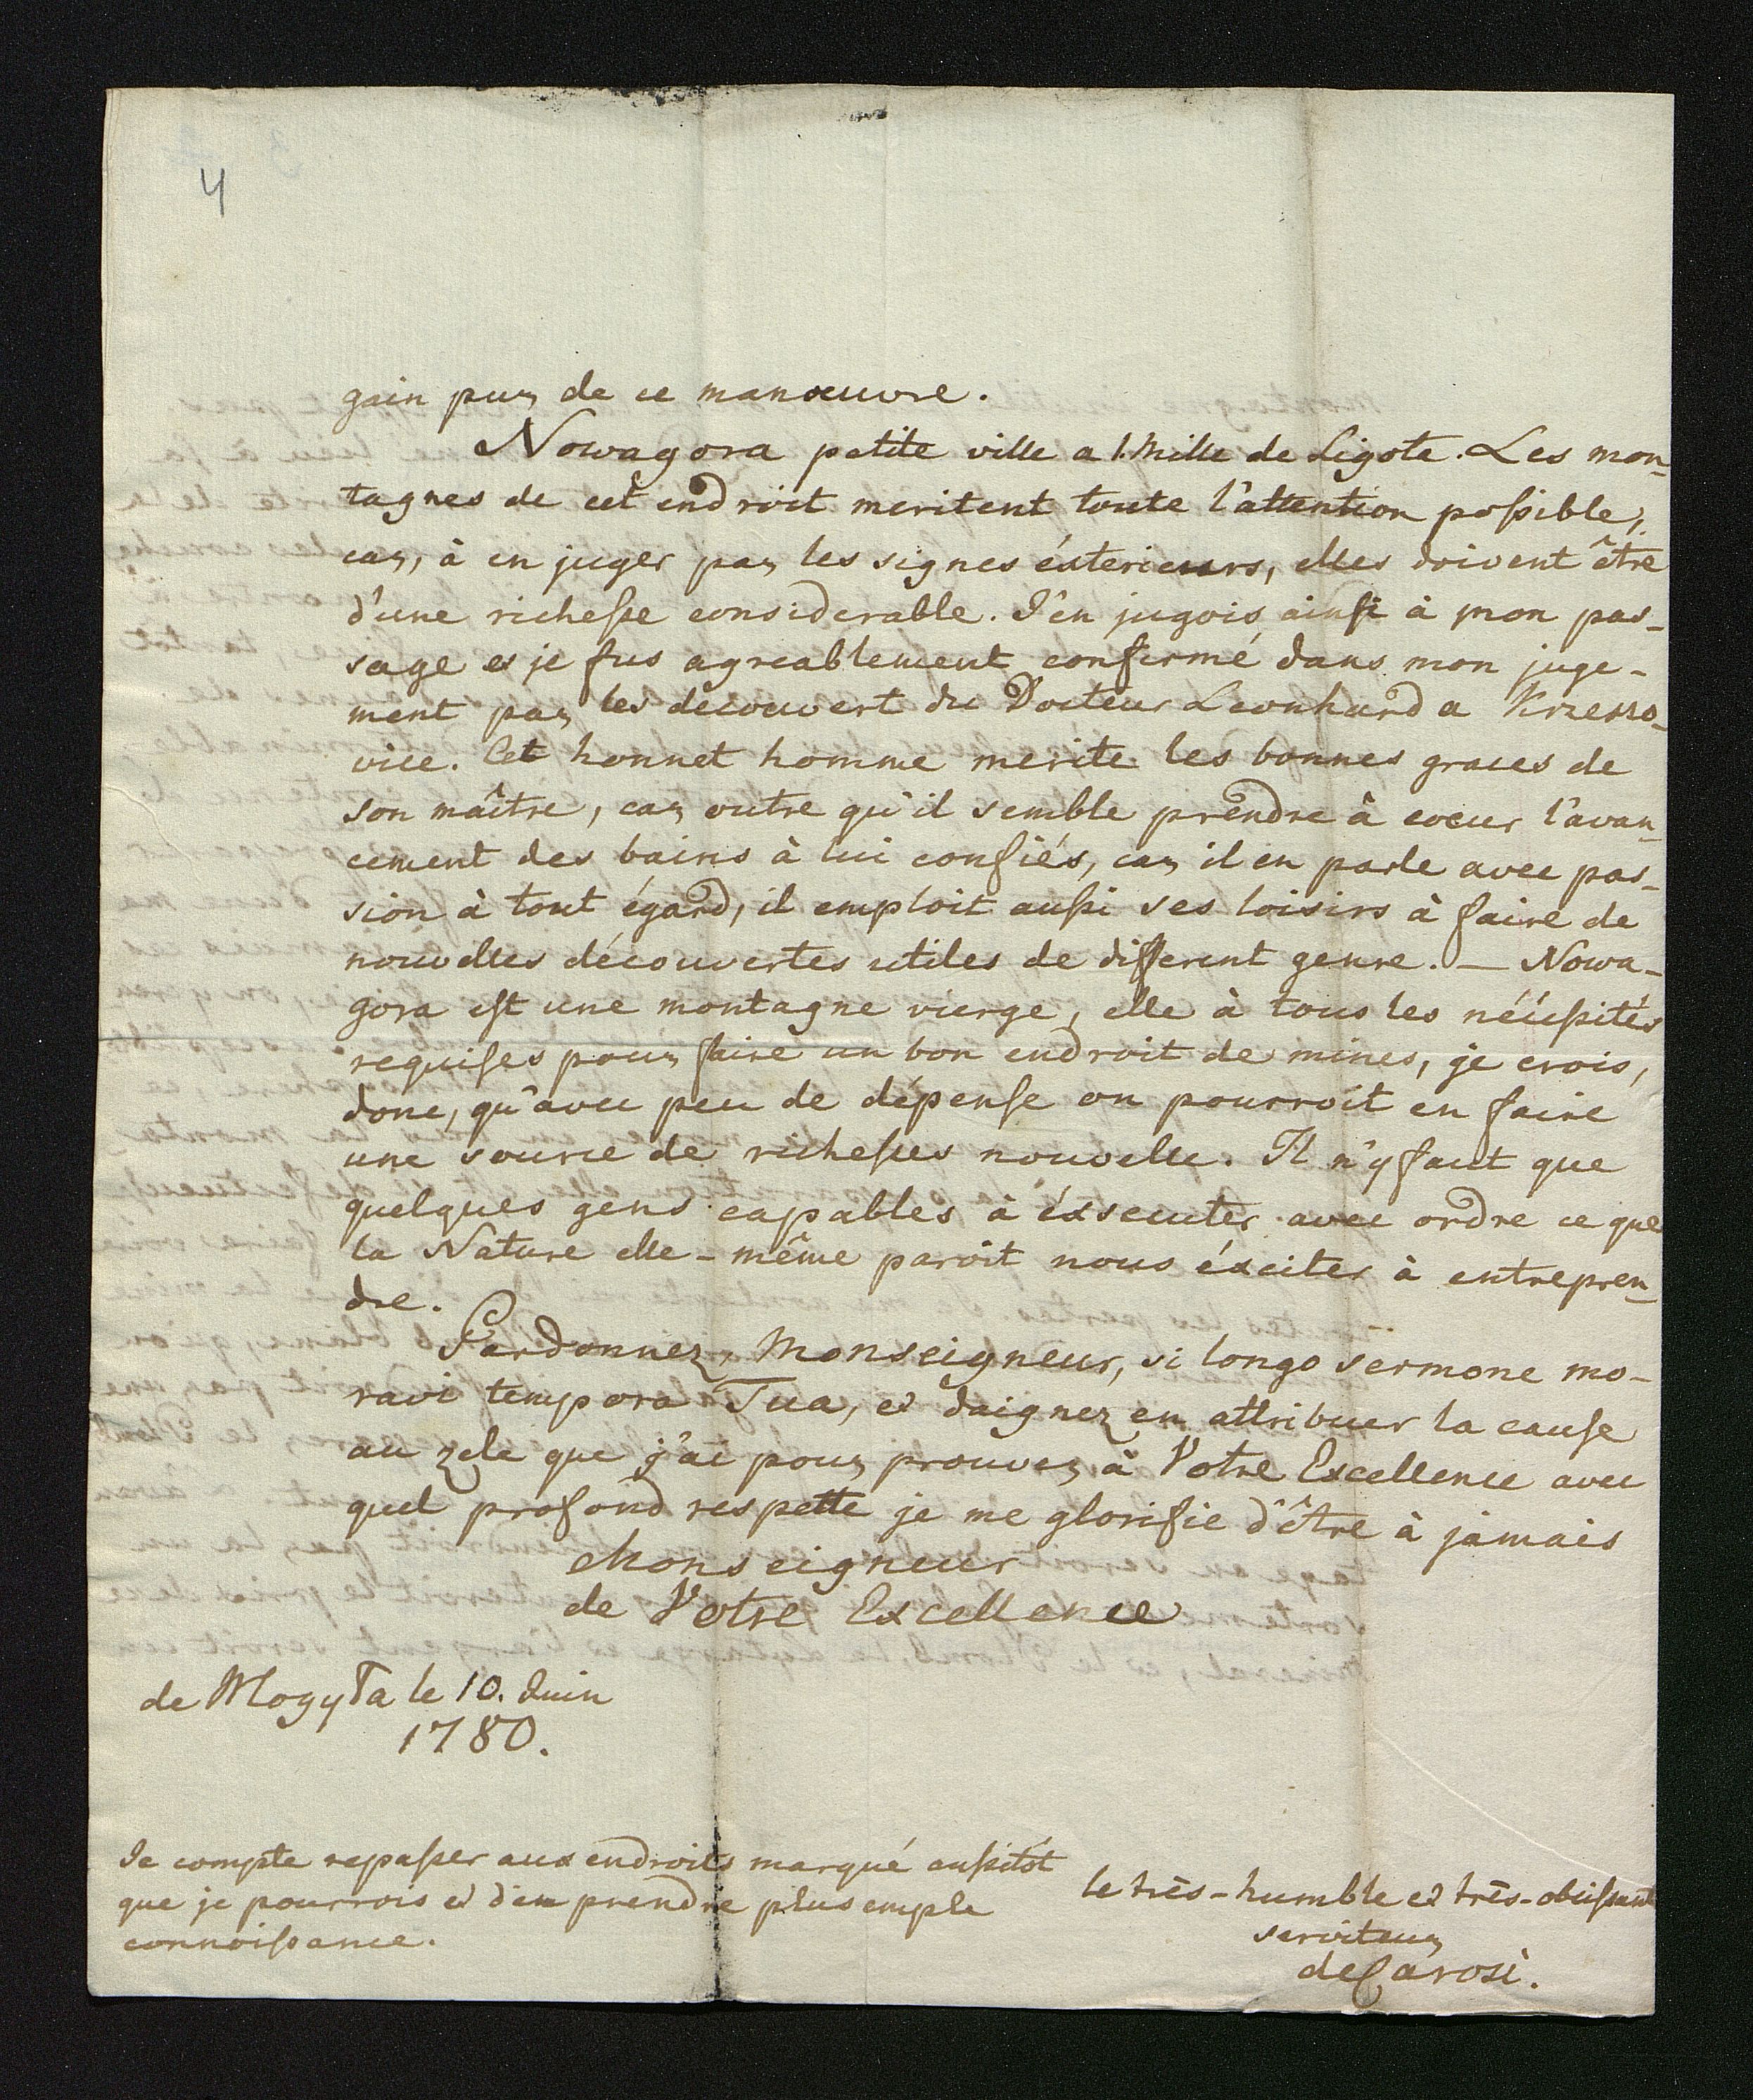 4
gain pur de ce manœuvre.
Nowagora petite ville a 1. Mille de Ligote. Les mon-
tagnes de cet endroit meritent toute l'attention possible,
car, à en juger par les signes éxterieurs, elles doivent être
d'une richesse considerable. J'en jugois ainsi à mon pas-
sage et je fus agreablement confirmé dans mon juge-
ment par les decouvert du Docteur Leonhard a Krzeszo-
vice. Cet honnet homme merite les bonnes graces de
son maître, car outre qu'il semble prendre à coeur l'avan-
cement des bains à lui confiés, car il en parle avec pas-
sion à tout égard, il emploit aussi ses loisirs à faire de
nouvelles découvertes utiles de different genre. — Nowa-
gora est une montagne vierge, elle à tous les nécéssités
requises pour faire un bon endroit de mines, je crois,
donc, qu'avec peu de dépense on pourroit en faire
une source de richesses nouvelle. Il n'y faut que
quelques gens capables à éxsecuter avec ordre ce que
la Nature elle-même paroît nous éxciter à entrepren-
dre.
Pardonnez, Monseigneur, si longo sermone mo-
ravi tempora Tua, et daignez en attribuer la cause
au zele que j'ai pour prouver à Votre Excellence avec
quel profond respette je me glorifie d'être à jamais
Monseigneur
de Votre Excellence
de Mogyla le 10. Juin
1780.
Je compte repasser aux endroits marqué aussitôt
que je pourrois et d'en prendre plus emple
connoissance.
le très-humble et très-obeissant
serviteur
de Carosi.